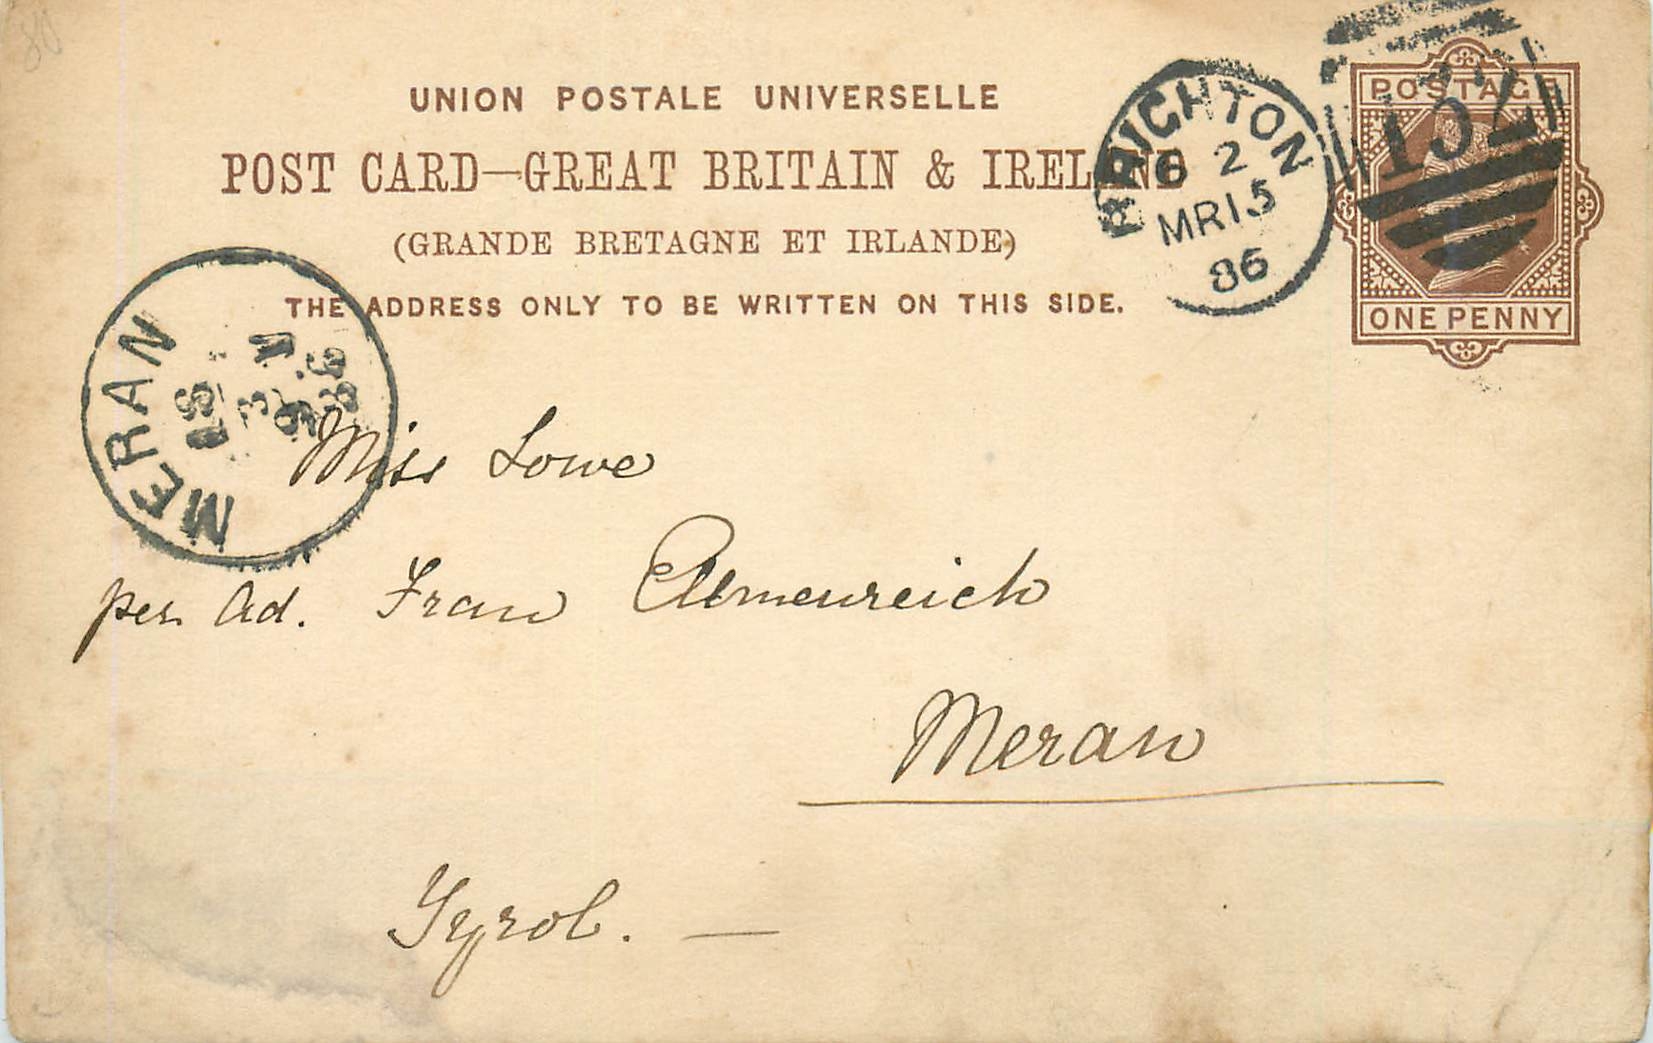 UNION POSTALE UNIVERSELLE
POST CARD—GREAT BRITAIN & IRELAND
(GRANDE BRETAGNE ET IRLANDE)
THE ADDRESS ONLY TO BE WRITTEN ON THIS SIDE.
BRIGHTON
2
MR 15
86
132
POSTAGE
ONE PENNY
MERAN
18
3
86
Miss Lowe
per Ad. Frau Elmenreich
Meran
Tyrol. —
80